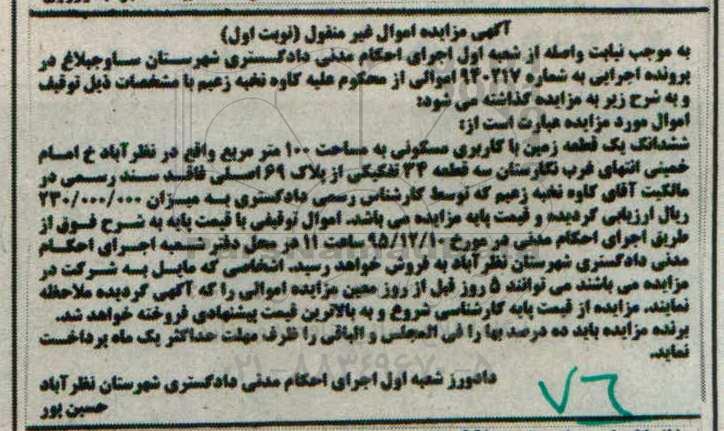 آگهی مزایده اموال غیر منقول (نوبت اول)
به موجب نیابت واصله از شعبه اول اجرای احکام مدنی دادگستری شهرستان ساوجبلاغ در
پرونده اجرایی به شماره ۹۴۰۲۱۷ اموالی از محکوم علیه کاوه نخبه زعیم با مشخصات ذیل توقیف
و به شرح زیر به مزایده گذاشته می شود:
اموال مورد مزایده عبارت است از:
ششدانگ یک قطعه زمین با کاربری مسکونی به مساحت ۱۰۰ متر مربع واقع در نظرآباد خ امام
خمینی انتهای غرب نگارستان سه قطعه ۳۴ تفکیکی از پلاک ۶۹ اصلی فاقد سند رسمی در
مالکیت آقای کاوه نخبه زعیم که توسط کارشناس رسمی دادگستری به میزان ۲۳۰/۰۰۰/۰۰۰
ریال ارزیابی گردیده و قیمت پایه مزایده می باشد. اموال توقیفی با قیمت پایه به شرح فوق از
طریق اجرای احکام مدنی در مورخ ۹۵/۱۲/۱۰ ساعت ۱۱ در محل دفتر شعبه اجرای احکام
مدنی دادگستری شهرستان نظرآباد به فروش خواهد رسید. اشخاصی که مایل به شرکت در
مزایده می باشند می توانند ۵ روز قبل از روز معین مزایده اموالی را که آگهی گردیده ملاحظه
نمایند. مزایده از قیمت پایه کارشناسی شروع و به بالاترین قیمت پیشنهادی فروخته خواهد شد.
برنده مزایده باید ده درصد بها را فی المجلس و الباقی را ظرف مهلت حداکثر یک ماه پرداخت
نماید.
دادورز شعبه اول اجرای احکام مدنی دادگستری شهرستان نظرآباد
حسین پور
۷۶